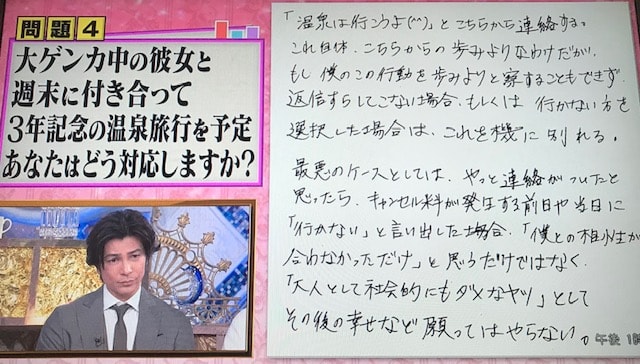 問題4
大ゲンカ中の彼女と
週末に付き合って
3年記念の温泉旅行を予定
あなたはどう対応しますか?
「温泉は行こうよ(^^)」とこちらから連絡する。
これ自体、こちらからの歩みよりなわけだが、
もし僕のこの行動を歩みよりと察することもできず、
返信すらしてこない場合、もしくは行かない方を
選択した場合は、これを機に別れる。
最悪のケースとしては、やっと連絡がついたと
思ったら、キャンセル料が発生する前日や当日に
「行かない」と言い出した場合、「僕との相性が
合わなかっただけ」と思うだけではなく、
「大人として社会的にもダメなヤツ」として
その後の幸せなど願ってはやらない。
午後 1